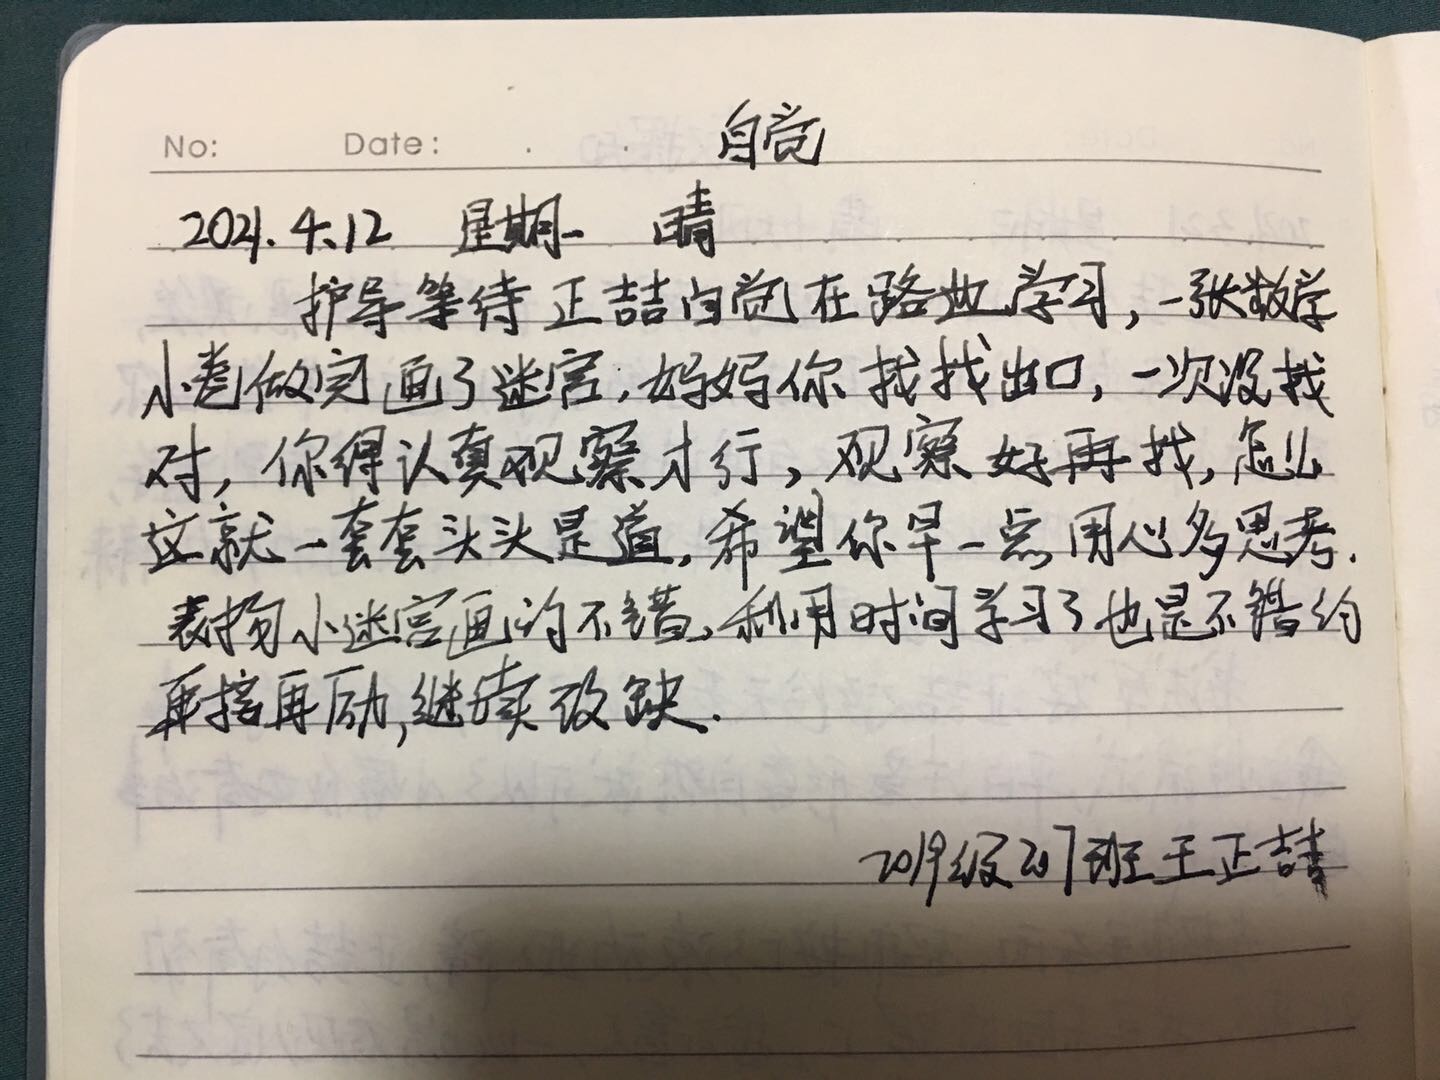 No: Date: 自觉
2021.4.12 星期一 晴
护导等待正喆自觉在路边学习,一张数学
小卷做完画了迷宫,妈妈你找找出口,一次没找
对,你得认真观察才行,观察好再找,怎么
这就一套套头头是道,希望你早一点用心多思考.
表扬小迷宫画的不错,利用时间学习了也是不错的
再接再励,继续改缺.
2019级207班王正喆